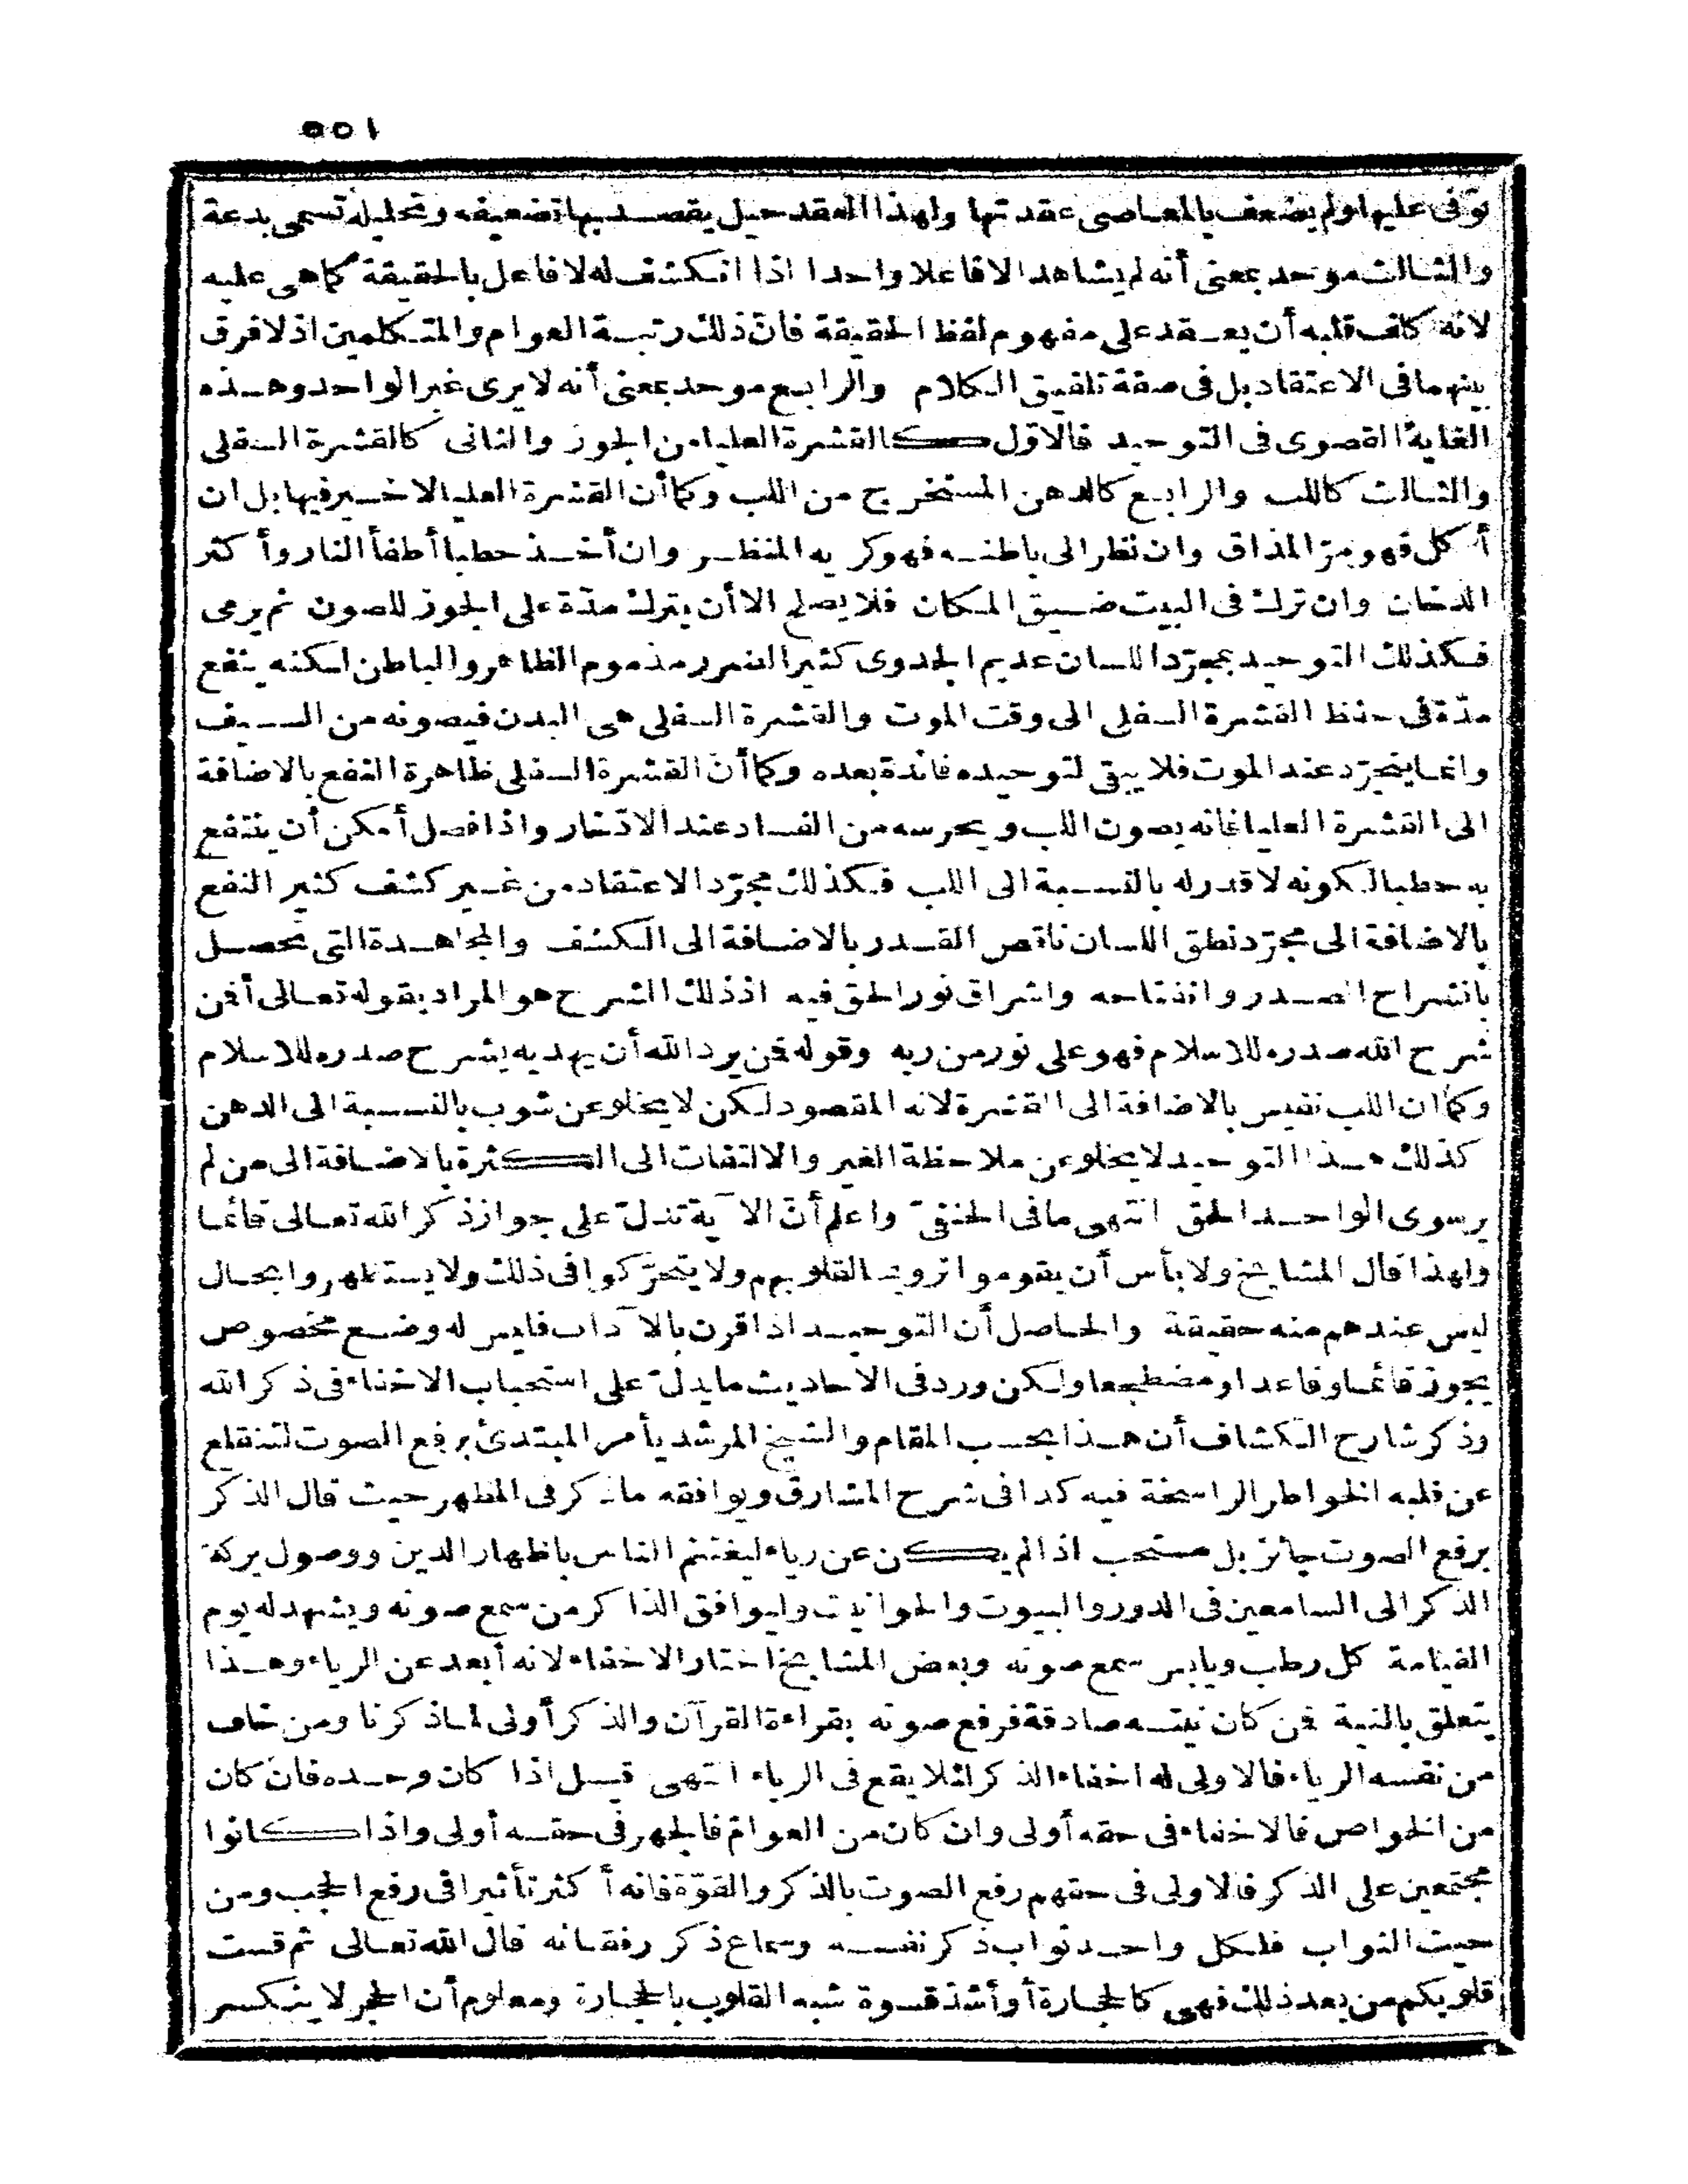 ١٥٥
توفى عليها ولم يضعف بالمعاصى عقدتها ولهذا العقد حيل يقصد بها تضعيفه وتحليله تسمى بدعة
والثالث موحد بمعنى أنه لم يشاهد الا فاعلا واحدا اذا انكشف له لا فاعل بالحقيقة كماهى عليه
لانه كلف قلبه أن يعقد على مفهوم لفظ الحقيقة فانّ ذلك رتبة العوام والمتكلمين اذ لا فرق
بينهما فى الاعتقاد بل فى صفة تلفيق الكلام والرابع موحد بمعنى أنه لا يرى غير الواحد وهذه
الغاية القصوى فى التوحيد فالاوّل كالقشرة العليا من الجوز والثانى كالقشرة السفلى
والثالث كاللب والرابع كالدهن المستخرج من اللب وكما أن القشرة العليا لا خير فيها بل ان
أكل فهو مرّ المذاق وان نظر الى باطنه فهو كريه المنظر وان أخذ حطبا أطفأ النار وأكثر
الدخان وان ترك فى البيت ضيق المكان فلا يصلح الا أن يترك مدّة على الجوز للصون ثم يرمى
فكذلك التوحيد بمجرّد اللسان عديم الجدوى كثير الضرر مذموم الظاهر والباطن لكنه ينفع
مدّة فى حفظ القشرة السفلى الى وقت الموت والقشرة السفلى هى البدن فيصونه من السيف
وانما يتجرّد عند الموت فلا يبقى لتوحيده فائدة بعده وكما أن القشرة السفلى ظاهرة النفع بالاضافة
الى القشرة العليا فانه يصون اللب ويحرسه من الفساد عند الادّخار واذا فصل أمكن أن ينتفع
به حطبا لكونه لا قدر له بالنسبة الى اللب فكذلك مجرّد الاعتقاد من غير كشف كثير النفع
بالاضافة الى مجرّد نطق اللسان ناقص القدر بالاضافة الى الكشف والمجاهدة التى تحصل
بانشراح الصدر وانفتاحه واشراق نور الحق فيه اذ ذلك الشرح هو المراد بقوله تعالى أفمن
شرح الله صدره للاسلام فهو على نور من ربه وقوله فمن يرد الله أن يهديه يشرح صدره للاسلام
وكما ان اللب نفيس بالاضافة الى القشرة لانه المقصود لكن لا يخلو عن شوب بالنسبة الى الدهن
كذلك هذا التوحيد لا يخلو عن ملاحظة الغير والالتفات الى الكثرة بالاضافة الى من لم
ير سوى الواحد الحق انتهى ما فى الحنفىّ واعلم أنّ الآية تدلّ على جواز ذكر الله تعالى قائما
ولهذا قال المشايخ ولا بأس أن يقوموا ترويحا لقلوبهم ولا يتحرّكوا فى ذلك ولا يستظهروا بحال
ليس عندهم منه حقيقة والحاصل أن التوحيد اذا قرن بالآداب فليس له وضع مخصوص
يجوز قائما وقاعدا ومضطجعا ولكن ورد فى الاحاديث ما يدلّ على استحباب الاخفاء فى ذكر الله
وذكر شارح الكشاف أن هذا بحسب المقام والشيخ المرشد يأمر المبتدئ برفع الصوت لتنقلع
عن قلبه الخواطر الراسخة فيه كذا فى شرح المشارق ويوافقه ما ذكر فى المظهر حيث قال الذكر
برفع الصوت جائز بل مستحب اذا لم يكن عن رياء ليغتنم الناس باظهار الدين ووصول بركة
الذكر الى السامعين فى الدور والبيوت والحوانيت وليوافق الذاكر من سمع صوته ويشهد له يوم
القيامة كل رطب ويابس سمع صوته وبعض المشايخ اختار الاخفاء لانه أبعد عن الرياء وهذا
يتعلق بالنية فمن كان نيته صادقة فرفع صوته بقراءة القرآن والذكر أولى لما ذكرنا ومن خاف
من نفسه الرياء فالاولى له اخفاء الذكر لئلا يقع فى الرياء انتهى قيل اذا كان وحده فان كان
من الخواص فالاخفاء فى حقه أولى وان كان من العوامّ فالجهر فى حقه أولى واذا كانوا
مجتمعين على الذكر فالاولى فى حقهم رفع الصوت بالذكر والقوّة فانه أكثر تأثيرا فى رفع الحجب ومن
حيث الثواب فلكل واحد ثواب ذكر نفسه وسماع ذكر رفقائه قال الله تعالى ثم قست
قلوبكم من بعد ذلك فهى كالحجارة أو أشدّ قسوة شبه القلوب بالحجارة ومعلوم أن الحجر لا ينكسر